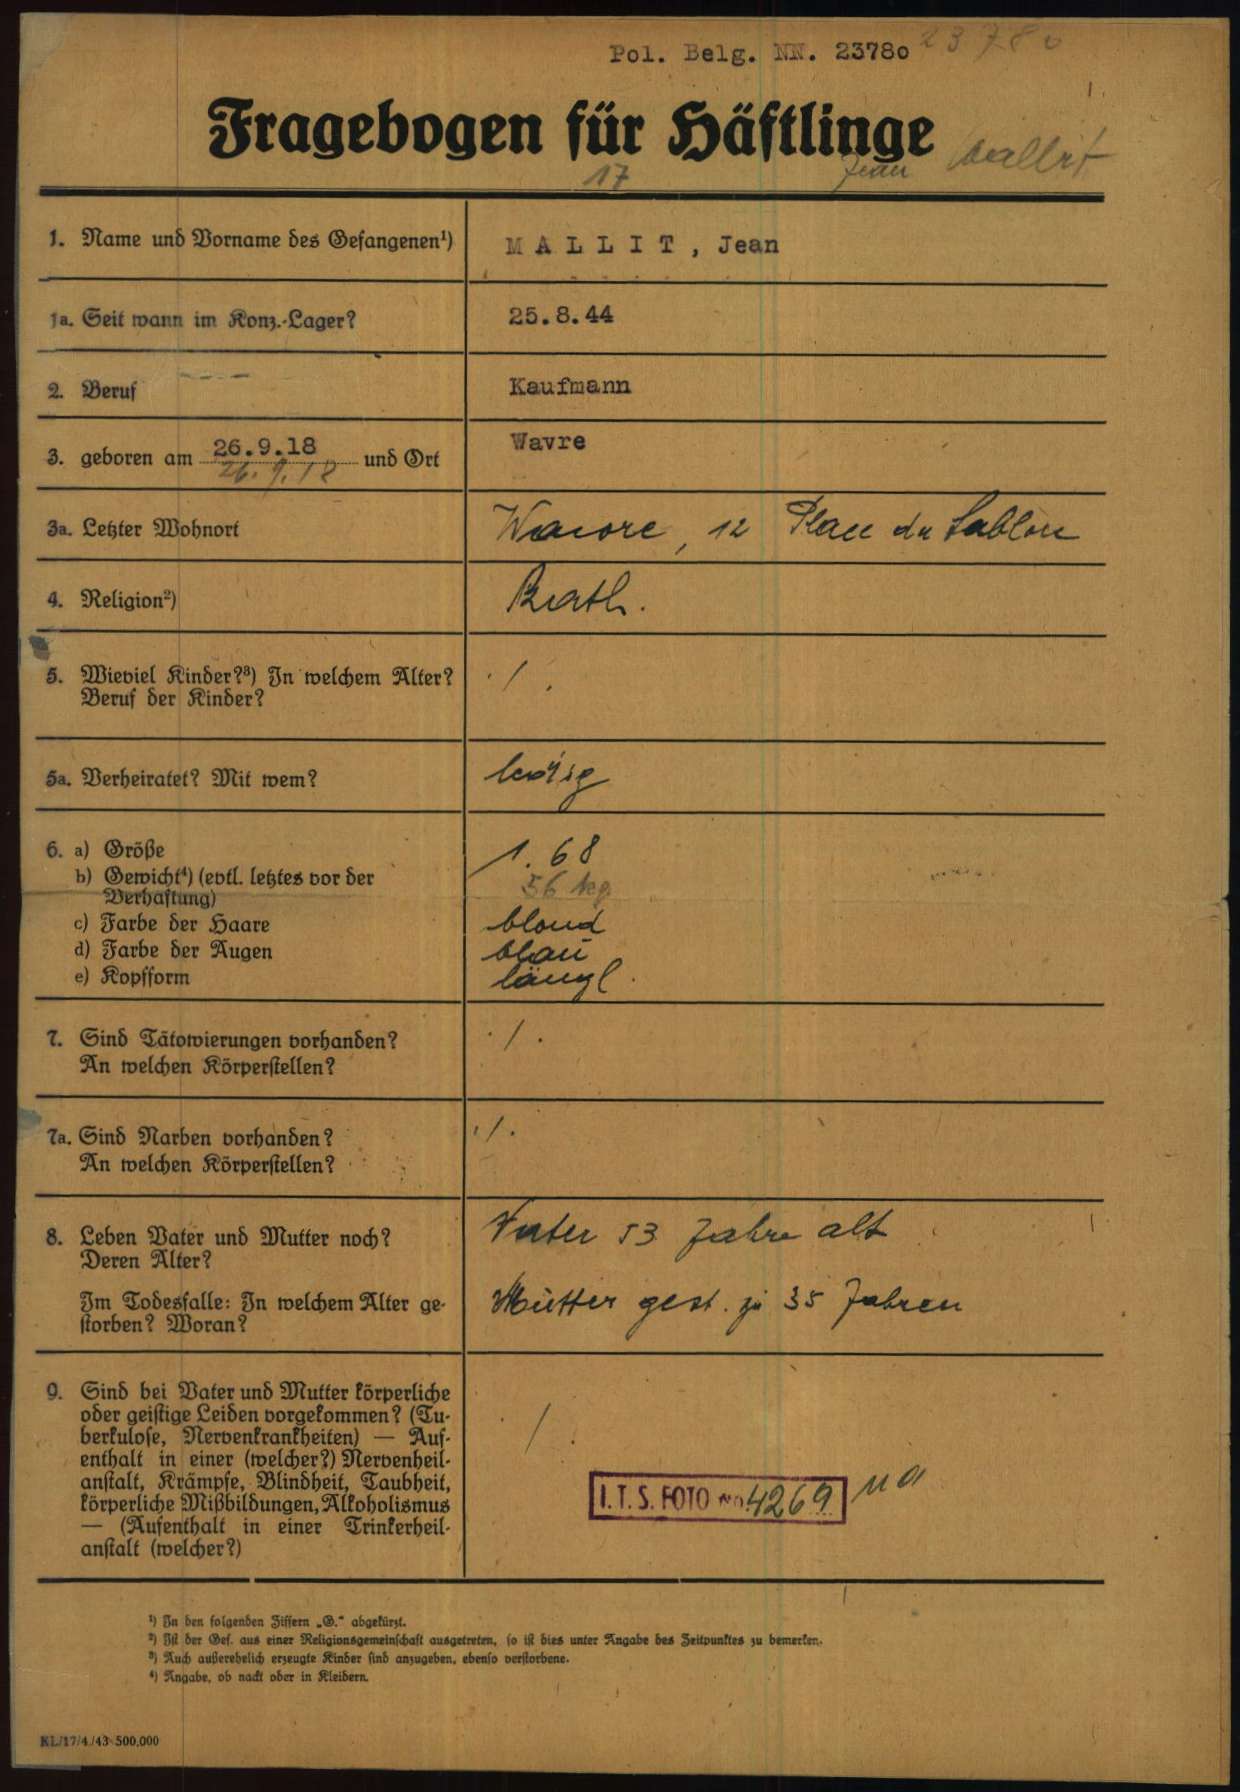 Pol. Belg. NN. 2378o 23780
Fragebogen für Häftlinge
17 Jean Mallit
1. Name und Vorname des Gefangenen¹) MALLIT, Jean
1a. Seit wann im Konz.-Lager? 25.8.44
2. Beruf Kaufmann
3. geboren am 26.9.18 und Ort Wavre
26.9.18
3a. Letzter Wohnort Wavre, 12 Place du Sablon
4. Religion²) Kath.
5. Wieviel Kinder?³) In welchem Alter? ./.
Beruf der Kinder?
5a. Verheiratet? Mit wem? ledig
6. a) Größe 1.68
b) Gewicht⁴) (evtl. letztes vor der 56 kg
Verhaftung)
c) Farbe der Haare blond
d) Farbe der Augen blau
e) Kopfform längl.
7. Sind Tätowierungen vorhanden? ./.
An welchen Körperstellen?
7a. Sind Narben vorhanden? ./.
An welchen Körperstellen?
8. Leben Vater und Mutter noch? Vater 53 Jahre alt
Deren Alter?
Im Todesfalle: In welchem Alter ge- Mutter gest. zu 35 Jahren
storben? Woran?
9. Sind bei Vater und Mutter körperliche
oder geistige Leiden vorgekommen? (Tu-
berkulose, Nervenkrankheiten) — Auf- ./.
enthalt in einer (welcher?) Nervenheil-
anstalt, Krämpfe, Blindheit, Taubheit,
körperliche Mißbildungen, Alkoholismus
— (Aufenthalt in einer Trinkerheil-
anstalt (welcher?)
I.T.S. FOTO No 4269
¹) In den folgenden Ziffern „G." abgekürzt.
²) Ist der Gef. aus einer Religionsgemeinschaft ausgetreten, so ist dies unter Angabe des Zeitpunktes zu bemerken.
³) Auch außerehelich erzeugte Kinder sind anzugeben, ebenso verstorbene.
⁴) Angabe, ob nackt oder in Kleidern.
KL/17/4/43 500.000